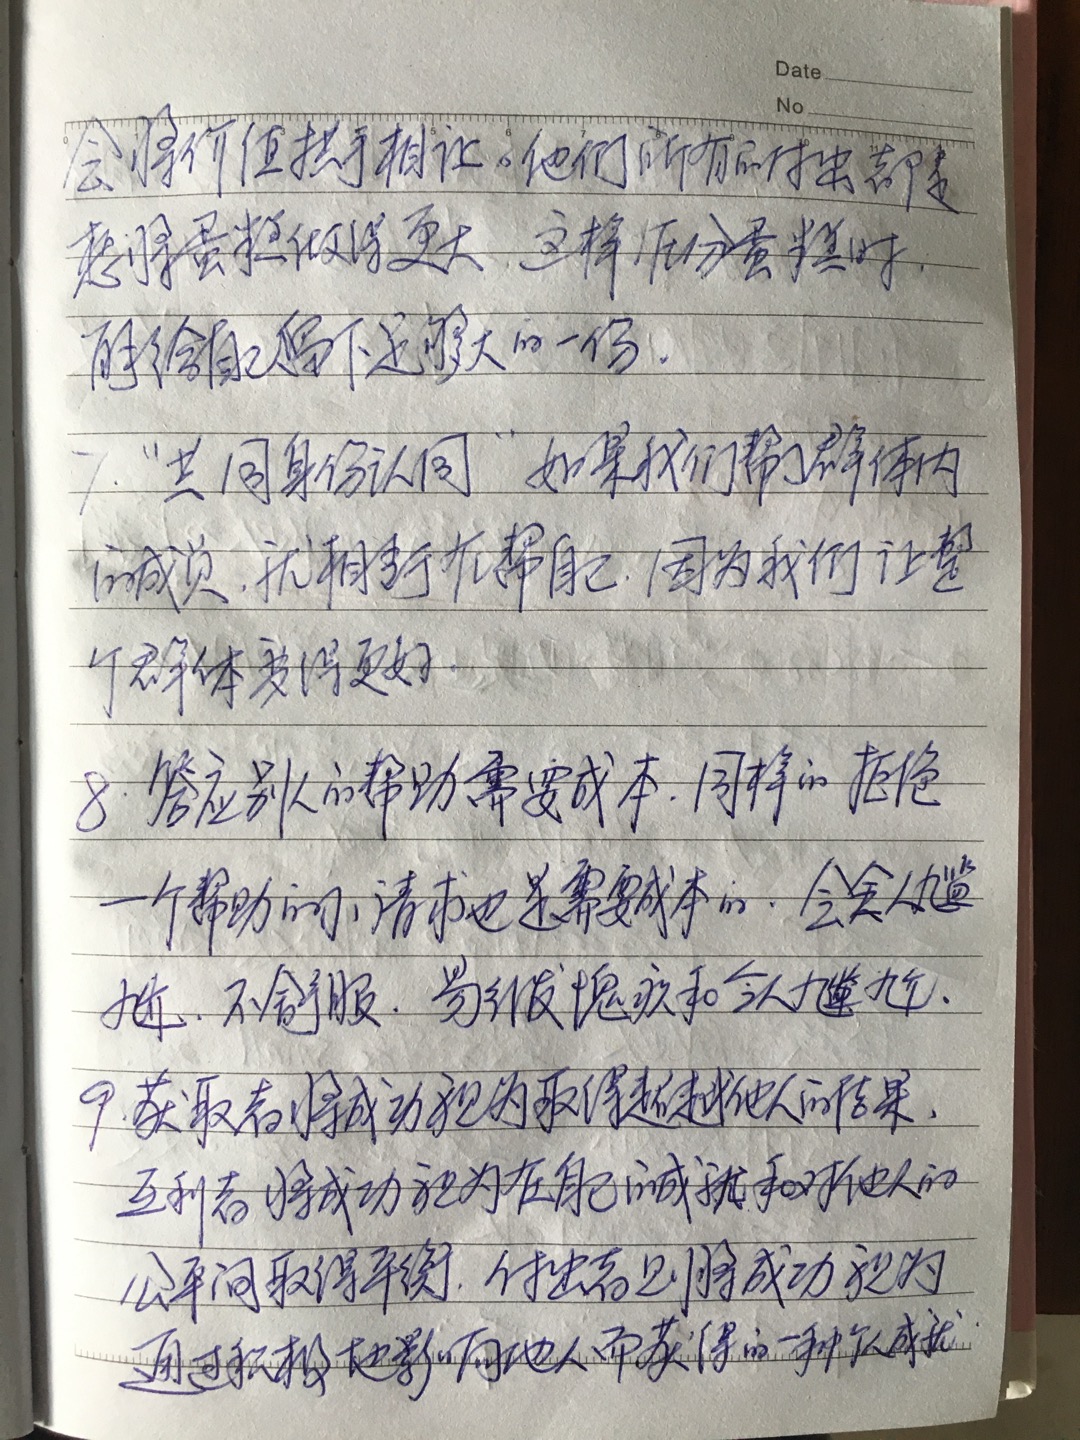 Date
No
会将价值拱手相让。他们所有的付出都是
想将蛋糕做得更大,这样在分蛋糕时,
能给自己留下足够大的一份.
7. “共同身份认同” 如果我们帮了群体内
的成员,就相当于在帮自己,因为我们让整
个群体变得更好.
8. 答应别人的帮助需要成本,同样的拒绝
一个帮助的请求也是需要成本的. 会令人尴
尬、不舒服. 易引发愧疚和令人尴尬.
9. 获取者将成功视为取得超越他人的结果,
互利者将成功视为在自己的成就和对他人的
公平间取得平衡. 付出者则将成功视为
通过积极地影响他人而获得的一种个人成就.